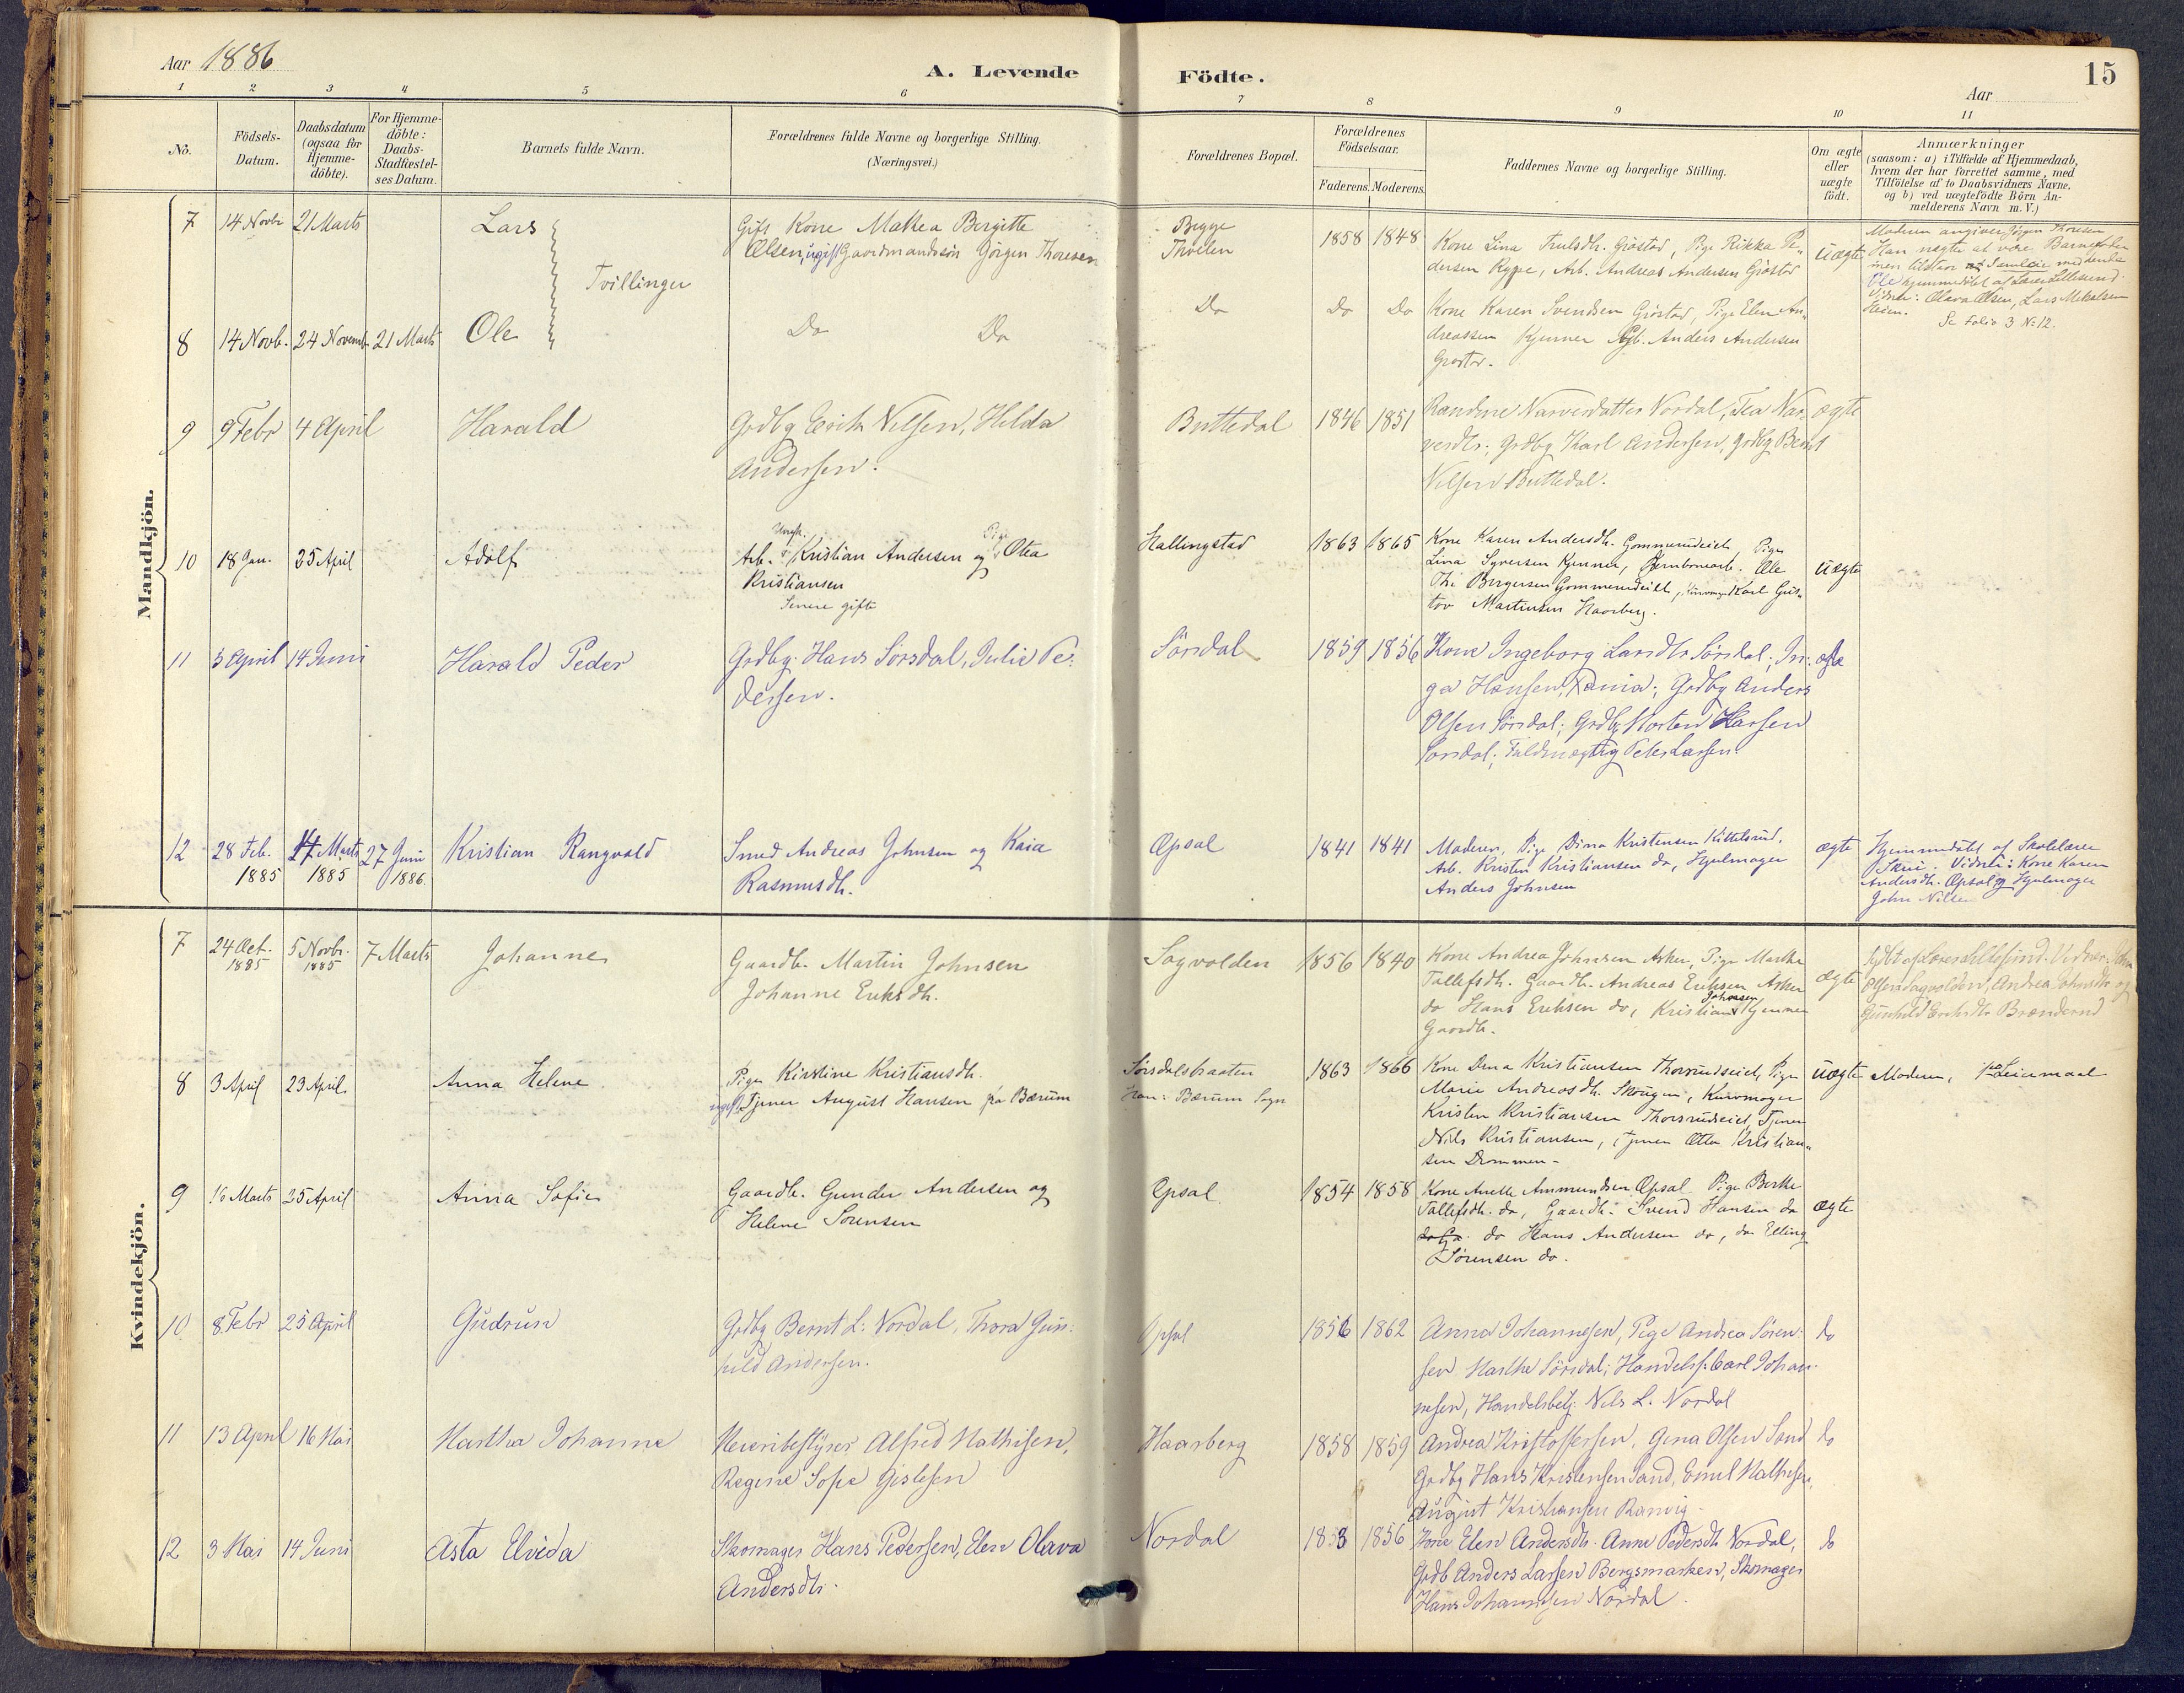 Aar 1886
A. Levende
Födte.
15
Aar
1 2 3 4 5 6 7 8 9 10 11
No.
Födsels-
Datum.
Daabsdatum
(ogsaa for
Hjemme-
döbte).
For Hjemme-
döbte:
Daabs-
Stadfæstel-
ses Datum.
Barnets fulde Navn.
Forældrenes fulde Navne og borgerlige Stilling.
(Næringsvei.)
Forældrenes Bopæl.
Forældrenes
Födselsaar.
Faderens. Moderens.
Faddernes Navne og borgerlige Stilling.
Om ægte
eller
uægte
födt.
Anmærkninger
(saasom: a) i Tilfælde af Hjemmedaab,
hvem der har forrettet samme, med
Tilföielse af to Daabsvidners Navne,
og b) ved uægtefödte Börn An-
melderens Navn m. V.)
Mandkjön.
7 14 Novbr 21 Marts Lars
Tvillinger
Gift Kone Mathea Birgitte
Olsen, ugift Gaardmandssön Jörgen Thoresen
Begge
1858 1848
Kone Lina Trulsdh. Gröstad, Pige Rikka Pe-
dersen Rype, Arb. Andreas Andersen Gröstad
Uægte
Moderen angiver Jörgen Thoresen
Han negter at være Barnefader
men tilstaar
Ole hjemmedöbt af Lærer Lillesund.
Vidner: Olava Olsen, Lars Mikelsen
Se Folio 3 No 12.
8 14 Novb. 24 Novemb. 21 Marts Ole
Do Do
Do Do Do
Kone Karen Svendsen Gröstad, Pige Elen An-
dreassen Kjenner Arb. Anders Andersen
Grøstad.
9 9 Febr 4 April Harald
Grdbg Erich Nilsen, Hilda
Andersen.
Buttedal 1846 1851
Randine Narvesdatter Nordal, Tea Nar-
vesdtr; Grdbg Karl Andersen, Grdbg Bernt
Nilsen Buttedal.
ægte
10 18 Jan. 25 April Adolf
Arb. Ungk. Kristian Andersen og Pige Otea
Kristiansen
Senere gifte
Hallingstad 1863 1865
Kone Karen Andersdh. Gommerudeiet, Pige
Lina Syversen Kjenner, Jernbanearb. Ole
Th. Bergersen Gommerudeiet, Karl Gus-
tav Martinsen Haarberg.
Uægte
11 3 April 14 Juni Harald Peder
Grdbg. Hans Sörsdal, Julie Pe-
dersen.
Sörsdal 1859 1856
Kone Ingeborg Larsdtr Sörsdal; In-
ga Hansen, Xania; Grdbg Anders
Olsen Sörsdal; Grdbg Morten Hansen
Sörsdal; Fuldmægtig Peter Larsen.
ægte
12 28 Feb. 1885 Marts 1885 27 Juni 1886. Kristian Rangvald
Smed Andreas Johnsen og Kaia
Rasmusdh.
Opsal 1841 1841
Moderen, Pige Dina Kristensen Kittelsrud,
Arb. Kristen Kristiansen do, Hjulmager
Anders Johnsen
ægte
Hjemmedöbt af Skolelærer
Skrei. Vidner: Kone Karen
Andersdh. Opsal og Hjulmager
John Nilsen
Kvindekjön.
7 24 Oct. 1885 5 Novbr. 1885 7 Marts Johanne
Gaardb. Martin Johnsen
Johanne Eriksdh.
Sagvolden 1856 1840
Kone Andrea Johnsen Asker, Pige Marthe
Tollefsdh. Gaardb. Andreas Eriksen Asker
do Hans Eriksen do, Kristian Johnsen Kjenner
Gaardb.
ægte
Hdbt af Lærer Lillesund. Vidner:
Olsen Sagvolden, Andrea Johnsdtr og
Gunhild Erichsdtr Brenderud
8 3 April 23 April Anna Helene
Pige Kirstine Kristiansdh.
ugift Tjener August Hansen fra Bærum
Sörsdalsbraaten
Han: Bærum Sogn
1863 1866
Kone Dina Kristiansen Thorsrudeiet, Pige
Marie Andreasdh. Skougen, Kurvmager
Kristen Kristiansen Thorsrudeiet, Tjener
Nils Kristiansen, tjener Otto Kristian-
sen Drammen.
Uægte Moderen, 1ste Leiermaal
9 16 Marts 25 April Anna Sofie
Gaardb. Gunder Andersen og
Helene Sörensen
Opsal 1854 1858
Kone Anette Ammundsen Opsal Pige Berthe
Tollefsdh. do, Gaardb. Svend Hansen do
do Hans Andersen do, do Elling
Sörensen do.
ægte
10 8 Febr 25 April Gudrun
Grdbg Bernt L. Nordal, Thora Gun-
hild Andersen.
Opsal 1856 1862
Anna Johannesen, Pige Andrea Sören-
sen Marthe Sörsdal; Handelsf. Carl Johan-
nesen, Handelsbetj. Nils L. Nordal
do
11 13 April 16 Mai Martha Johanne
Meieribestyrer Alfred Mathisen,
Regine Sofie Gislesen
Haarberg 1858 1859
Andrea Kristoffersen, Gina Olsen Sand
Grdbg Hans Kristensen Sand, Emil Mathisen,
August Kristiansen Ramvig.
do
12 3 Mai 14 Juni Asta Elvida
Skomager Hans Pedersen, Elen Olava
Andersdtr.
Nordal 1853 1856
Kone Elen Andersdtr. Anne Pedersdtr Nordal,
Grdb Anders Larsen Bergsmarken, Skomager
Hans Johannesen Nordal.
do